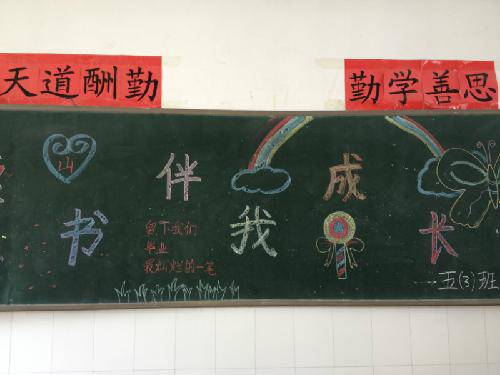 天道酬勤
勤学善思
书伴我成长
山
留下我们
毕业
最灿烂的一笔
五(3)班